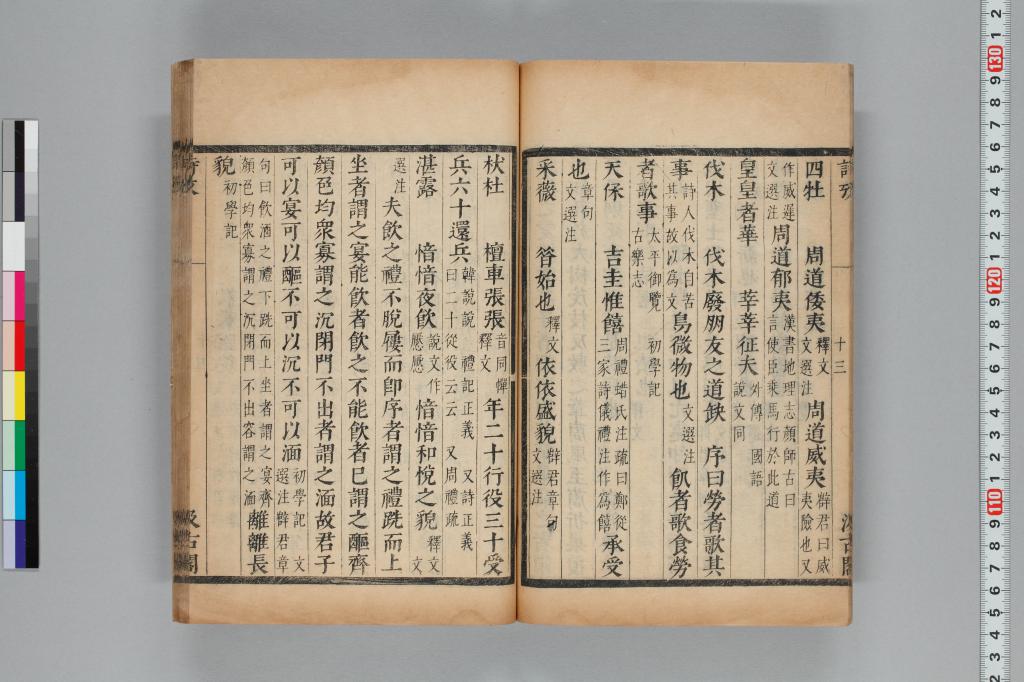 四牡 周道倭夷 釋文 文選注 周道威夷 薛君曰威夷險也又
作威遲 文選注 周道郁夷 漢書地理志顏師古曰言使臣乘馬行於此道
皇皇者華 莘莘征夫 外傳國語 說文同
伐木 伐木廢朋友之道缺 序曰勞者歌其
事 詩人伐木自苦其事故以為文 文選注 鳥微物也 飢者歌食勞
者歌事 太平御覽 初學記 古樂志
天保 吉圭惟饎 周禮蜡氏注疏曰鄭從三家詩儀禮注作為饎 承受
也 章句 文選注
采薇 昝始也 釋文 依依盛貌 薛君章句 文選注
杕杜 檀車張張 音同憚 釋文 年二十行役三十受
兵六十還兵 韓說說 禮記正義 又詩正義 曰二十從役云云 又周禮疏
湛露 愔愔夜飲 說文作懕懕 愔愔和悅之貌 釋文 文
選注 夫飲之禮不脫屨而卽序者謂之禮跣而上
坐者謂之宴能飲者飲之不能飲者已謂之醧齊
顏色均衆寡謂之沉閉門不出者謂之湎故君子
可以宴可以醧不可以沉不可以湎 初學記 文選注 薛君章
句曰飲酒之禮下跣而上坐者謂之宴齊顏色均衆寡謂之沉閉門不出容謂之湎 離離長
貌 初學記
十三
汲古閣